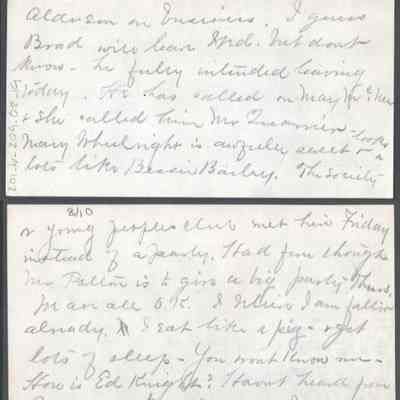 on business. I guess
Brad will leave Wed. but dont
know - he fully intended leaving
today. He has called on Mary
& she called him Mr
Mary Wheelwright is awfully sweet - looks
lots like Bessie Bailey. The Society
8/10
or young peoples club met here Friday
instead of a party. Had fun though
Mr. Patton is to give a big party Thurs.
am all O.K. I I am
already. I eat like a pig - & get
lots of sleep - You wont know me -
How is Ed Knight? Havnt heard from